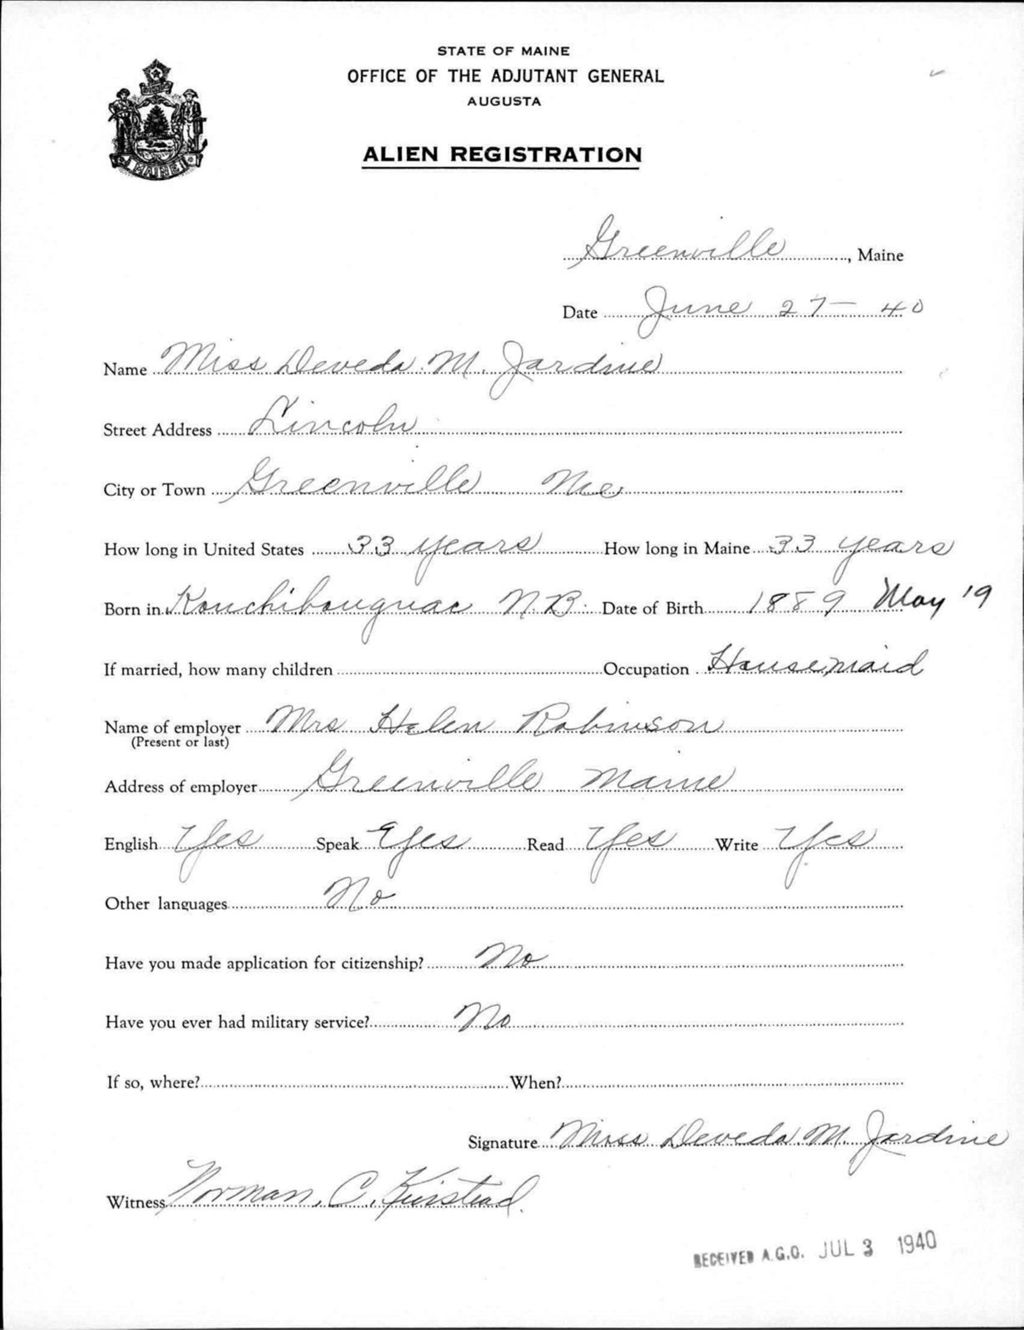 STATE OF MAINE
OFFICE OF THE ADJUTANT GENERAL
AUGUSTA
ALIEN REGISTRATION
MAINE
Greenville, Maine
Date June 27 - 40
Name Miss Deveda. M. Jardine
Street Address Lincoln
City or Town Greenville Me
How long in United States 33 years How long in Maine 33 years
Born in Kouchibouguac N.B. Date of Birth 1889 May 19
If married, how many children Occupation Housemaid
Name of employer Mrs Helen Robinson
(Present or last)
Address of employer Greenville Maine
English Yes Speak Yes Read Yes Write Yes
Other languages No
Have you made application for citizenship? No
Have you ever had military service? No
If so, where? When?
Signature Miss Deveda M. Jardine
Witness Norman. C.
RECEIVED A.G.O. JUL 3 1940